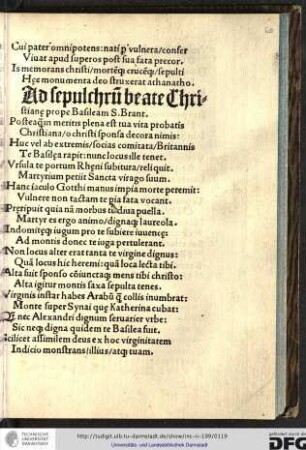 Cui pater omnipotens: nati ꝑ vulnera/confer
Viuat apud superos post sua fata precor.
Is memorans christi/mortẽq; crucẽq;/sepulti
Hęc monumenta deo struxerat athanatho.
Ad sepulchrũ beate Chri-
stianę prope Basileam S. Brant.
Posteaq̃ meritis plena est tua vita probatis
Christiana/o christi sponsa decora nimis:
Huc vel ab extremis/socias comitata/Britannis
Te Basilea rapit: nunc locus ille tenet.
Vrsula te portum Rheni subitura/reliquit.
Martyrium petiit Sancta virago suum.
Hanc iaculo Gotthi manus impia morte peremit:
Vulnere non tactam te pia fata vocant.
Preripuit quia nã morbus puella.
Martyr es ergo animo/dignaq; laureola.
Indomiteq; iugum pro te subiere iuuencę:
Ad montis donec te iuga pertulerant.
Non locus alter erat tanta te virgine dignus:
Quã locus hic heremi: quã loca lecta tibi.
Alta fuit sponso cõiunctaq; mens tibi christo:
Alta igitur montis saxa sepulta tenes.
Virginis instar habes Arabũ q̃ collis inumbrat:
Monte super Synai que Katherina cubat:
nec Alexandri dignum seruarier vrbe:
Sic neq; digna quidem te Basilea fuit.
Scilicet assimilem deus ex hoc virginitatem
Indicio monstrans/illius/atq; tuam.
60
TECHNISCHE UNIVERSITÄT DARMSTADT
http://tudigit.ulb.tu-darmstadt.de/show/inc-iv-199/0119
Universitäts- und Landesbibliothek Darmstadt
gefördert durch die
DFG